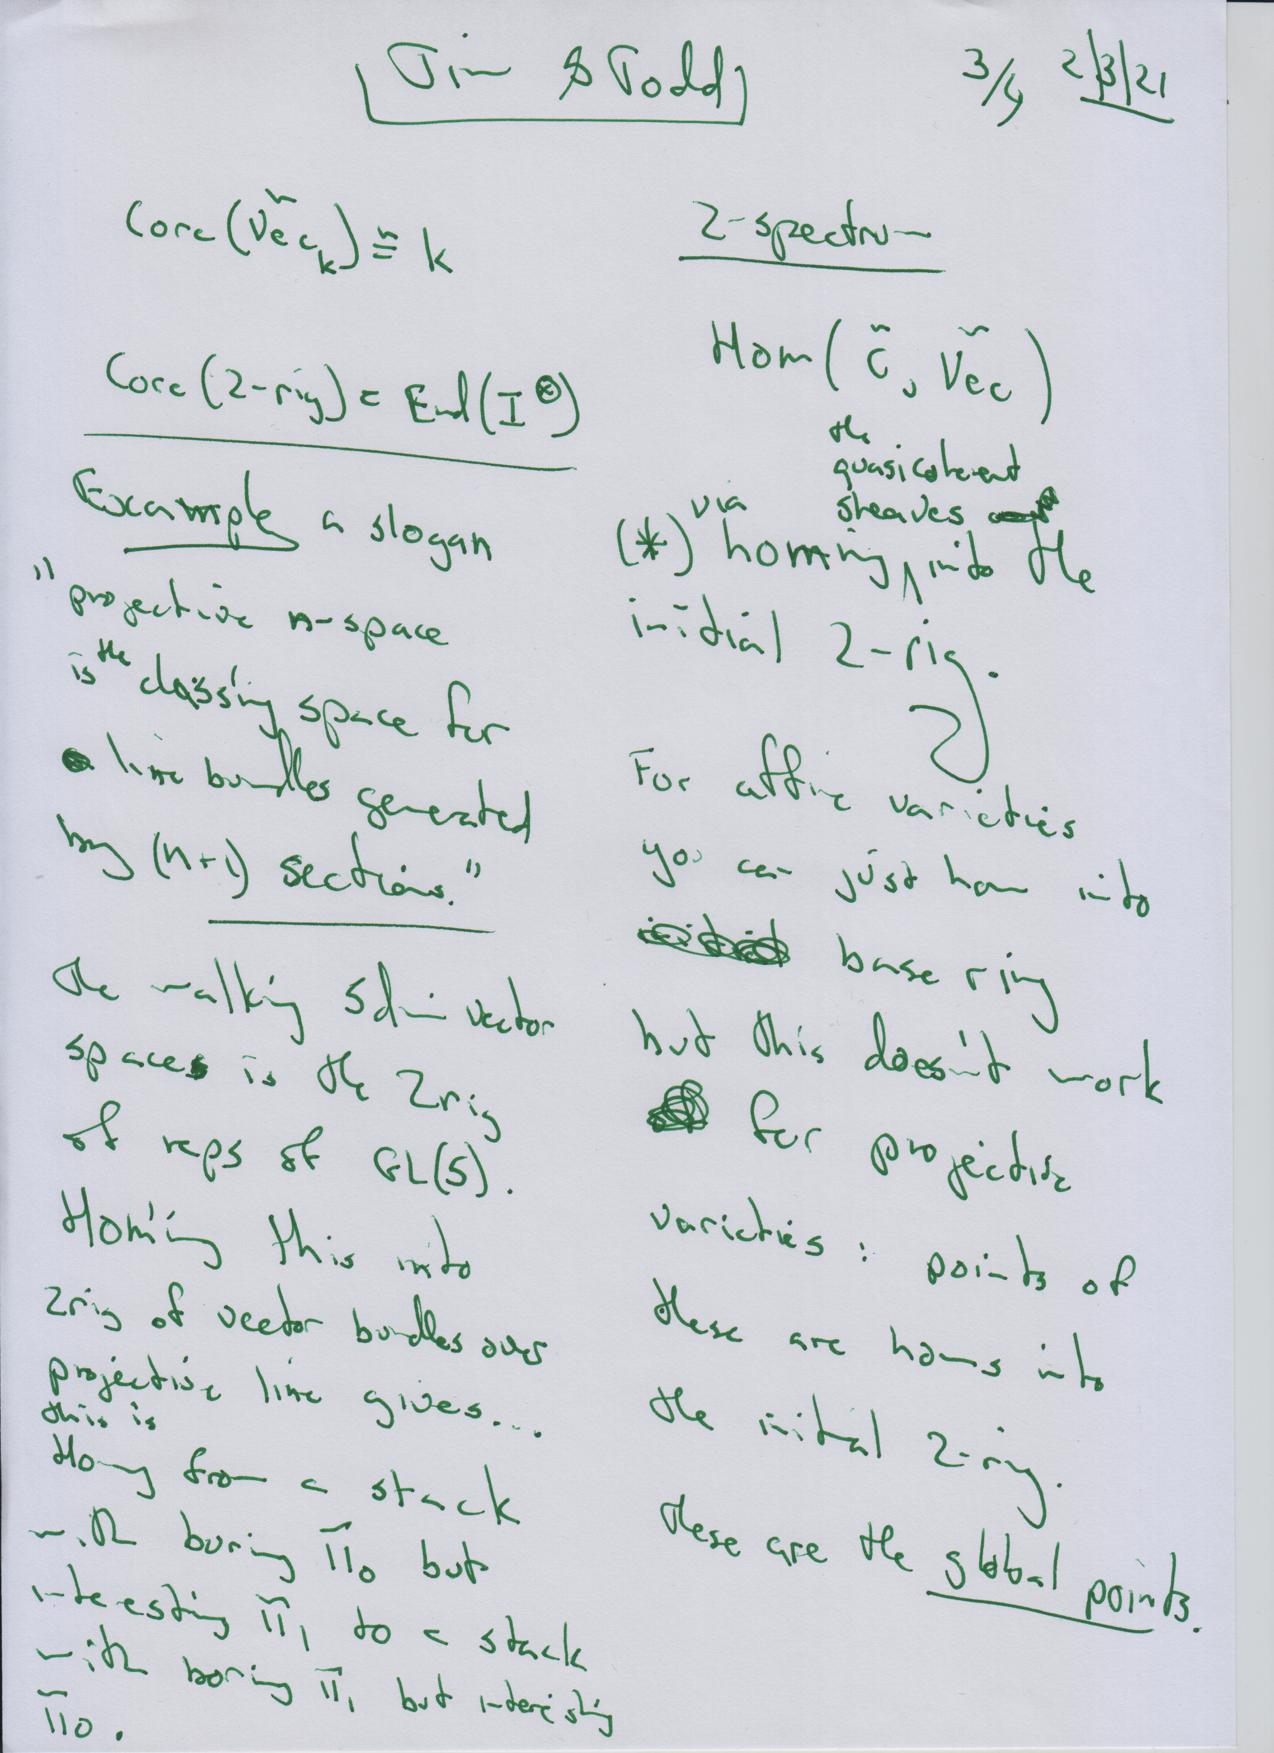 Jim & Todd
3/4 2/3/21
Core(Ṽec_k) ≅ k
Core(2-rig) = End(I^⊗)
Example a slogan
"projective n-space
is the classing space for
line bundles generated
by (n+1) sections."
the walking 5dim vector
spaces is the 2rig
of reps of GL(5).
Homing this into
2rig of vector bundles over
projective line gives...
this is
Homg from a stack
with boring π0 but
interesting π1 to a stack
with boring π1 but interesting
π0.
2-spectrum
Hom(C̃, Ṽec)
the
quasicoherent
sheaves
(*) via homing ∧ into the
initial 2-rig.
For affine varieties
you can just hom into
base ring
but this doesn't work
for projective
varieties: points of
these are homs into
the initial 2-rig.
these are the global points.